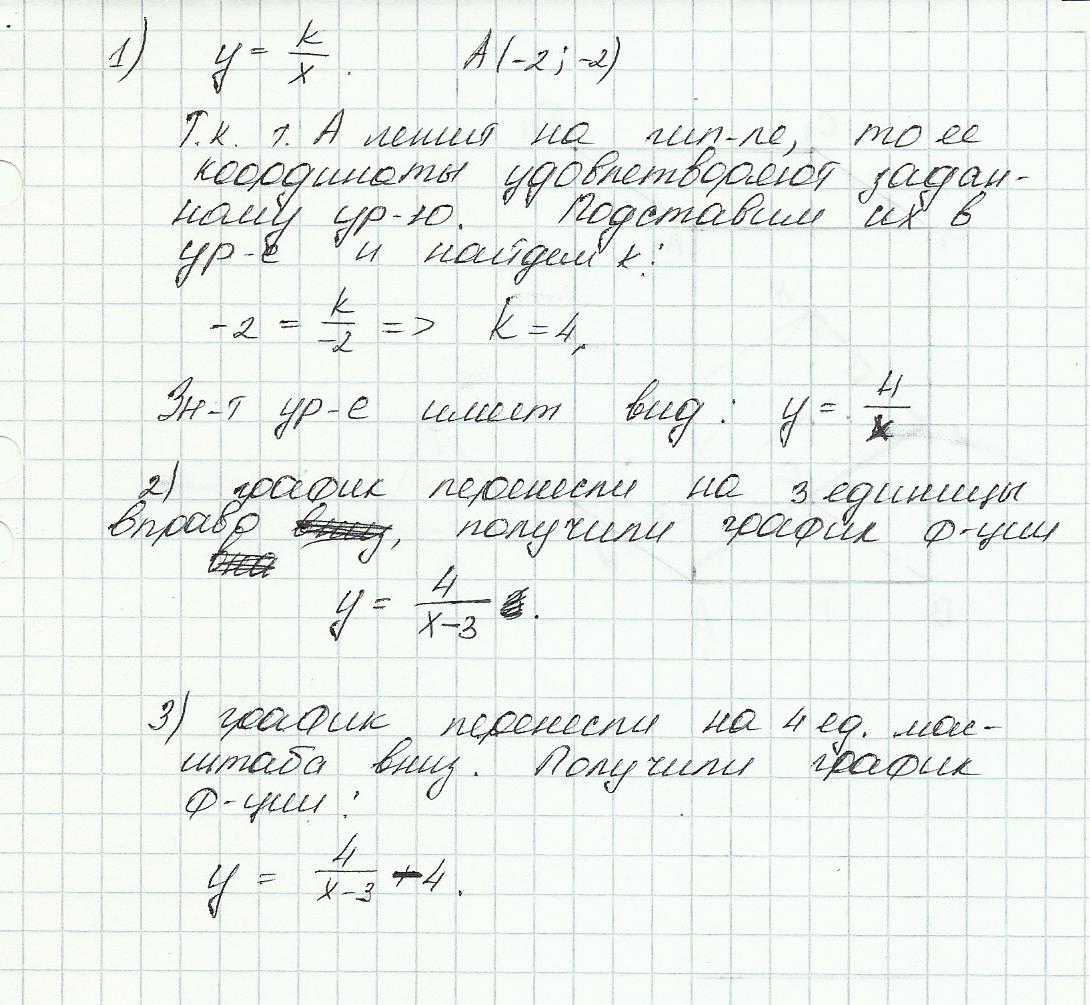 1) y = k/x. A(-2; -2)
Т.к. т. А лежит на гип-ле, то ее
координаты удовлетворяют задан-
ному ур-ю. Подставим их в
ур-е и найдем k:
-2 = k/-2 => k = 4,
Зн-т ур-е имеет вид: y = 4/x
2) график перенесли на 3 единицы
вправо, получили график ф-ции
y = 4/(x-3).
3) график перенесли на 4 ед. мас-
штаба вниз. Получили график
ф-ции:
y = 4/(x-3) - 4.